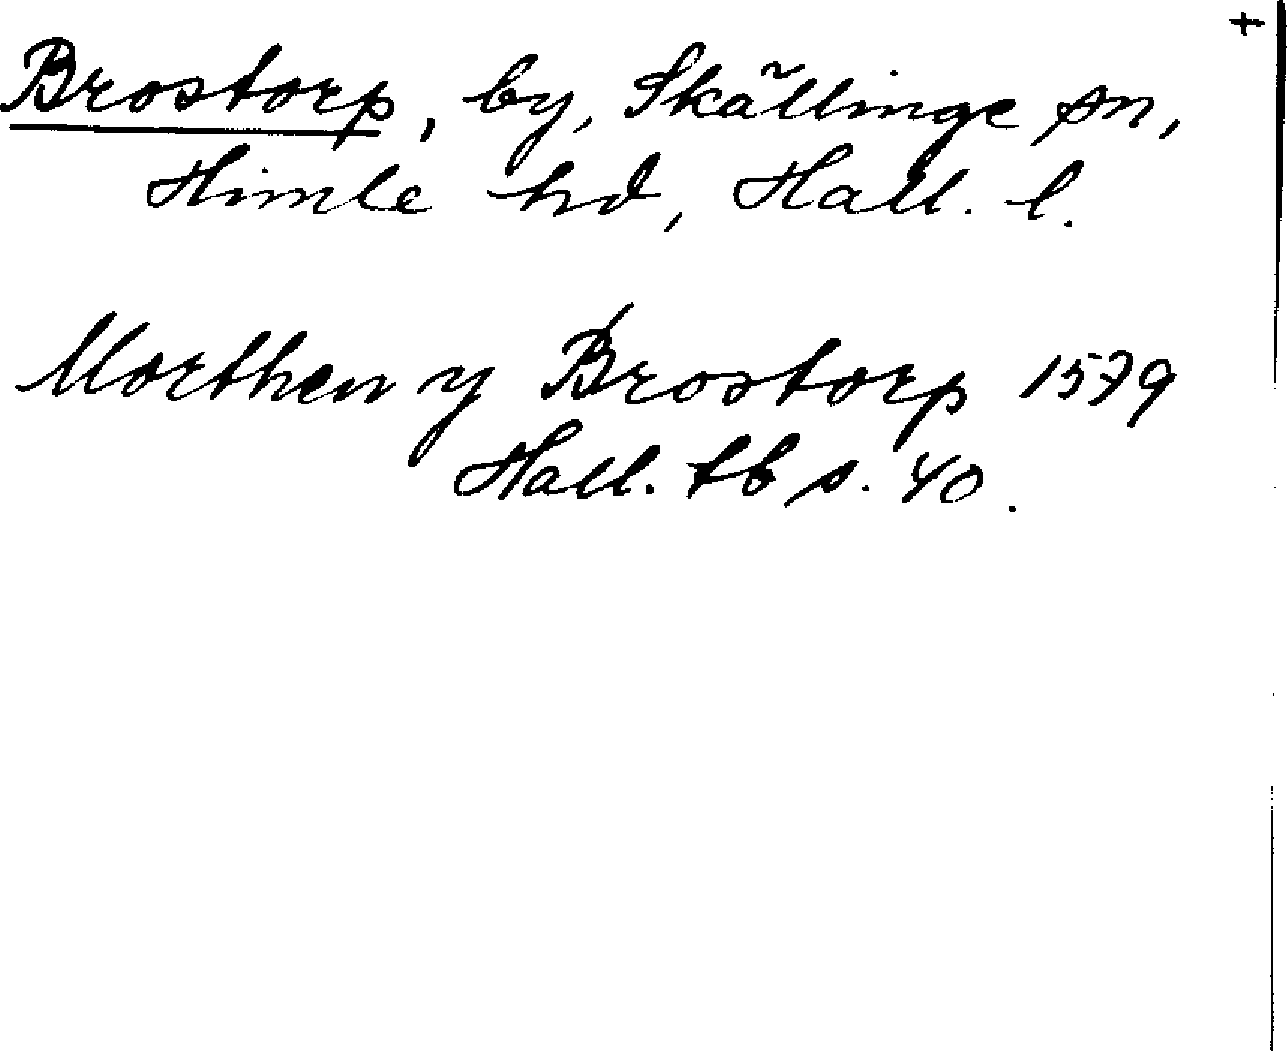 +
Brostorp, by, Skällinge sn,
Himle hd, Hall. l.
Morthen y Brostorp 1579
Hall. tb s. 40.